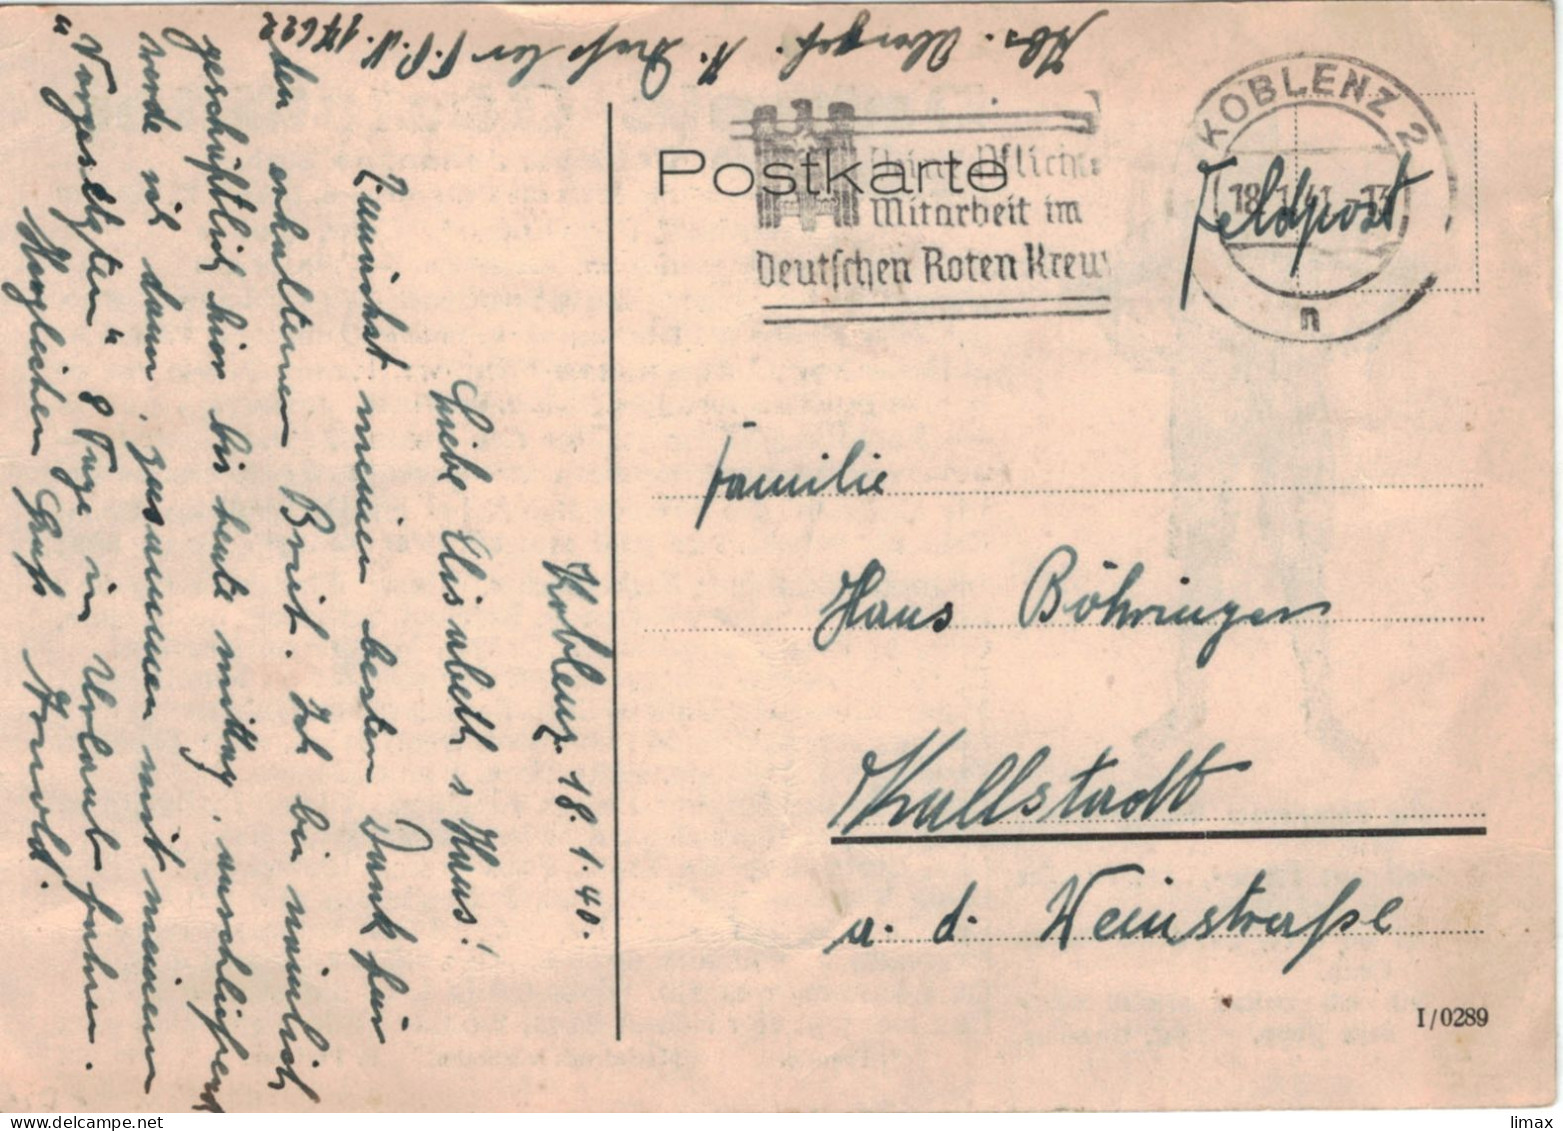 Abs. N. F.P.N. 17622
Postkarte
Deine Pflicht
Mitarbeit im
Deutschen Roten Kreuz
KOBLENZ 2
18.1.41.-13
n
Feldpost
Koblenz. 18.1.40.
Liebe Elisabeth u Hans!
Zunächst meinen besten Dank für
den erhaltenen Brief. Ich bin nämlich
geschäftlich hier bis heute mittag, anschließend
werde ich dann zusammen mit meinem
„Vorgesetzten“ 8 Tage in Urlaub fahren.
Herzlichen Gruß
Familie
Hans Böhringer
Kallstadt
a. d. Weinstraße
I/0289
limax